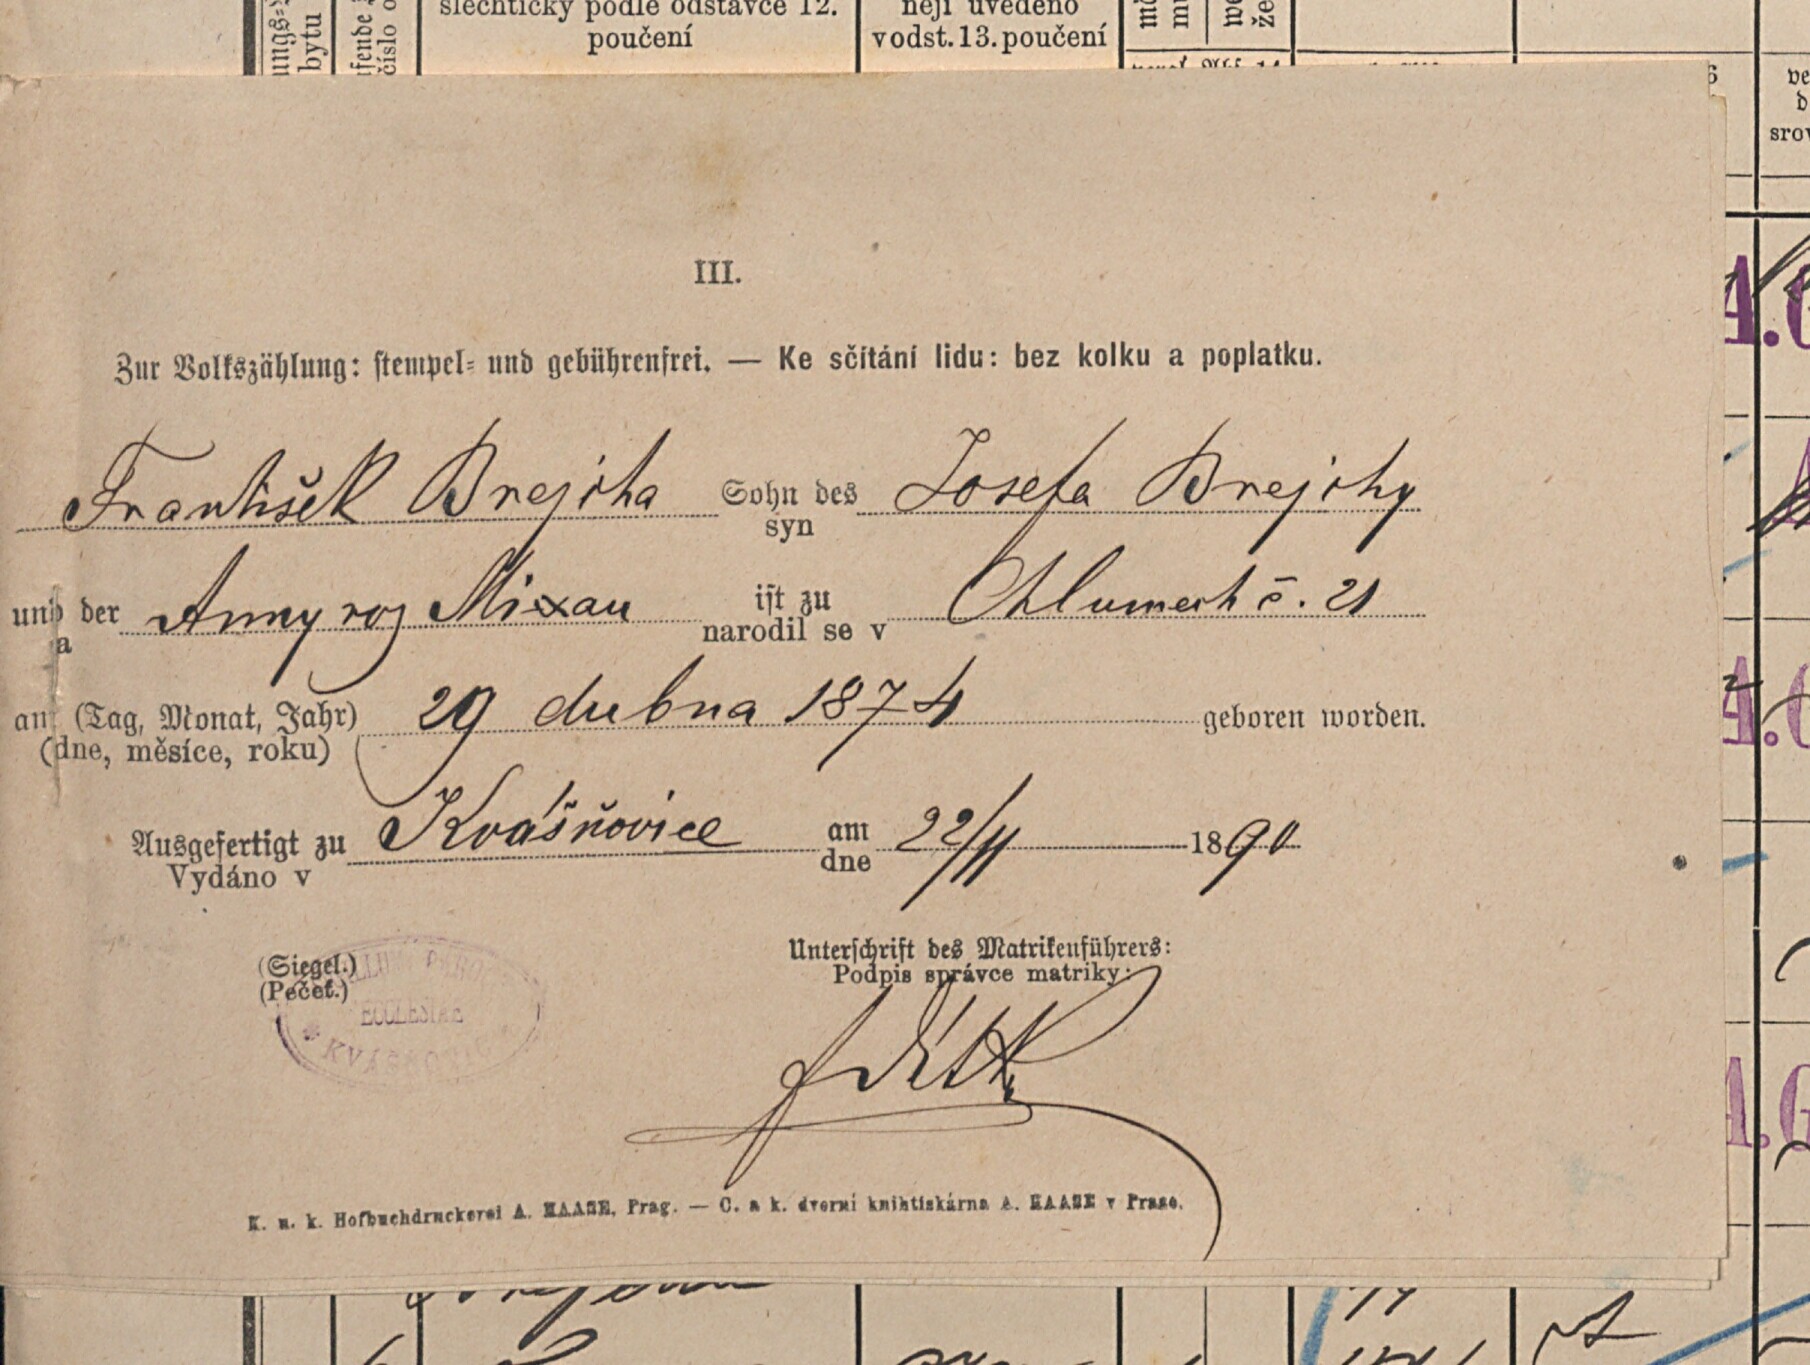 šlechtický podle odstavce 12.
poučení
něji uvedeno
v odst. 13. poučení
bytu
číslo
III.
Zur Volkszählung: stempel- und gebührenfrei. — Ke sčítání lidu: bez kolku a poplatku.
František Brejcha Sohn des Josefa Brejchy
syn
und der Anny roz Mixan ist zu Chlumech č. 21
a narodil se v
am (Tag, Monat, Jahr) 29 dubna 1874 geboren worden.
(dne, měsíce, roku)
Ausgefertigt zu Kvášňovice am 22/11 1890
Vydáno v dne
(Siegel.)
(Pečeť.)
ECCLESIAE
Unterschrift des Matrikenführers:
Podpis správce matriky:
K. u. k. Hofbuchdruckerei A. HAASE, Prag. — C. a k. dvorní knihtiskárna A. HAASE v Praze.